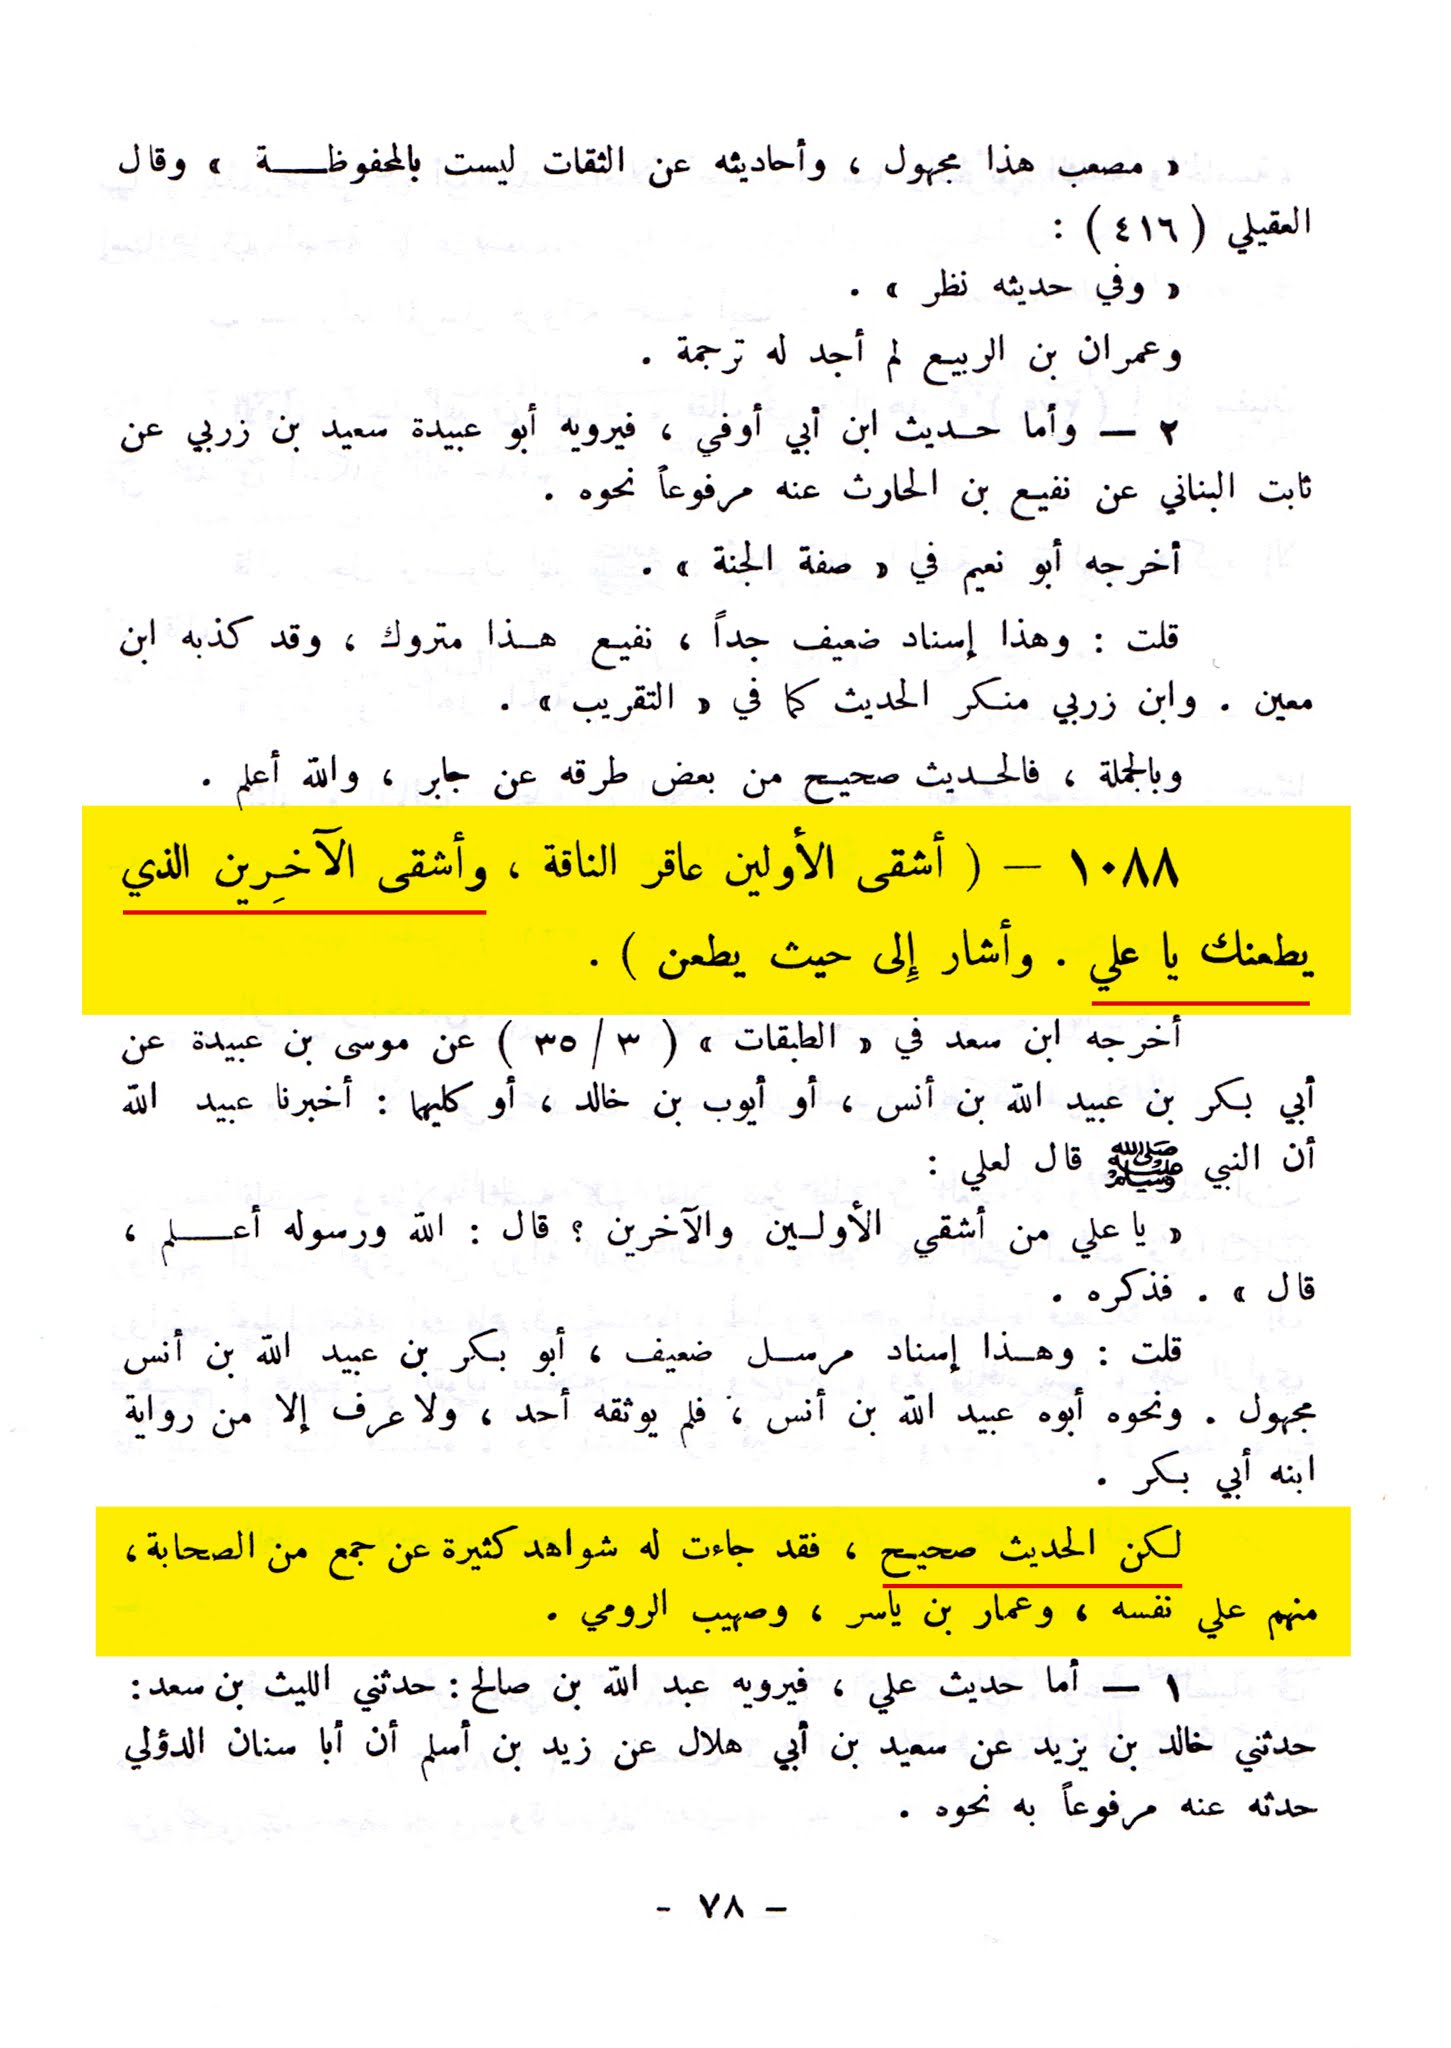 « مصعب هذا مجهول ، وأحاديثه عن الثقات ليست بالمحفوظـــة » وقال
العقيلي ( ٤١٦ ) :
« وفي حديثه نظر » .
وعمران بن الربيع لم أجد له ترجمة .
٢ — وأما حديث ابن أبي أوفي ، فيرويه أبو عبيدة سعيد بن زربي عن
ثابت البناني عن نفيع بن الحارث عنه مرفوعاً نحوه .
أخرجه أبو نعيم في « صفة الجنة » .
قلت : وهذا إسناد ضعيف جداً ، نفيع هـذا متروك ، وقد كذبه ابن
معين . وابن زربي منكر الحديث كما في « التقريب » .
وبالجملة ، فالحديث صحيح من بعض طرقه عن جابر ، والله أعلم .
١٠٨٨ — ( أشقى الأولين عاقر الناقة ، وأشقى الآخِرين الذي
يطعنك يا علي . وأشار إِلى حيث يطعن ) .
أخرجه ابن سعد في « الطبقات » ( ٣ / ٣٥ ) عن موسى بن عبيدة عن
أبي بكر بن عبيد الله بن أنس ، أو أيوب بن خالد ، أو كليهما : أخبرنا عبيد الله
أن النبي ﷺ قال لعلي :
« يا علي من أشقي الأولـين والآخرين ؟ قال : الله ورسوله أعـــلم ،
قال » . فذكره .
قلت : وهـذا إسناد مرسـل ضعيف ، أبو بكر بن عبيد الله بن أنس
مجهول . ونحوه أبوه عبيد الله بن أنس ، فلم يوثقه أحد ، ولا عرف إلا من رواية
ابنه أبي بكر .
لكن الحديث صحيح ، فقد جاءت له شواهد كثيرة عن جمع من الصحابة ،
منهم علي نفسه ، وعمار بن ياسر ، وصهيب الرومي .
١ — أما حديث علي ، فيرويه عبد الله بن صالح : حدثني الليث بن سعد :
حدثني خالد بن يزيد عن سعيد بن أبي هلال عن زيد بن أسلم أن أبا سنان الدؤلي
حدثه عنه مرفوعاً به نحوه .
- ٧٨ -